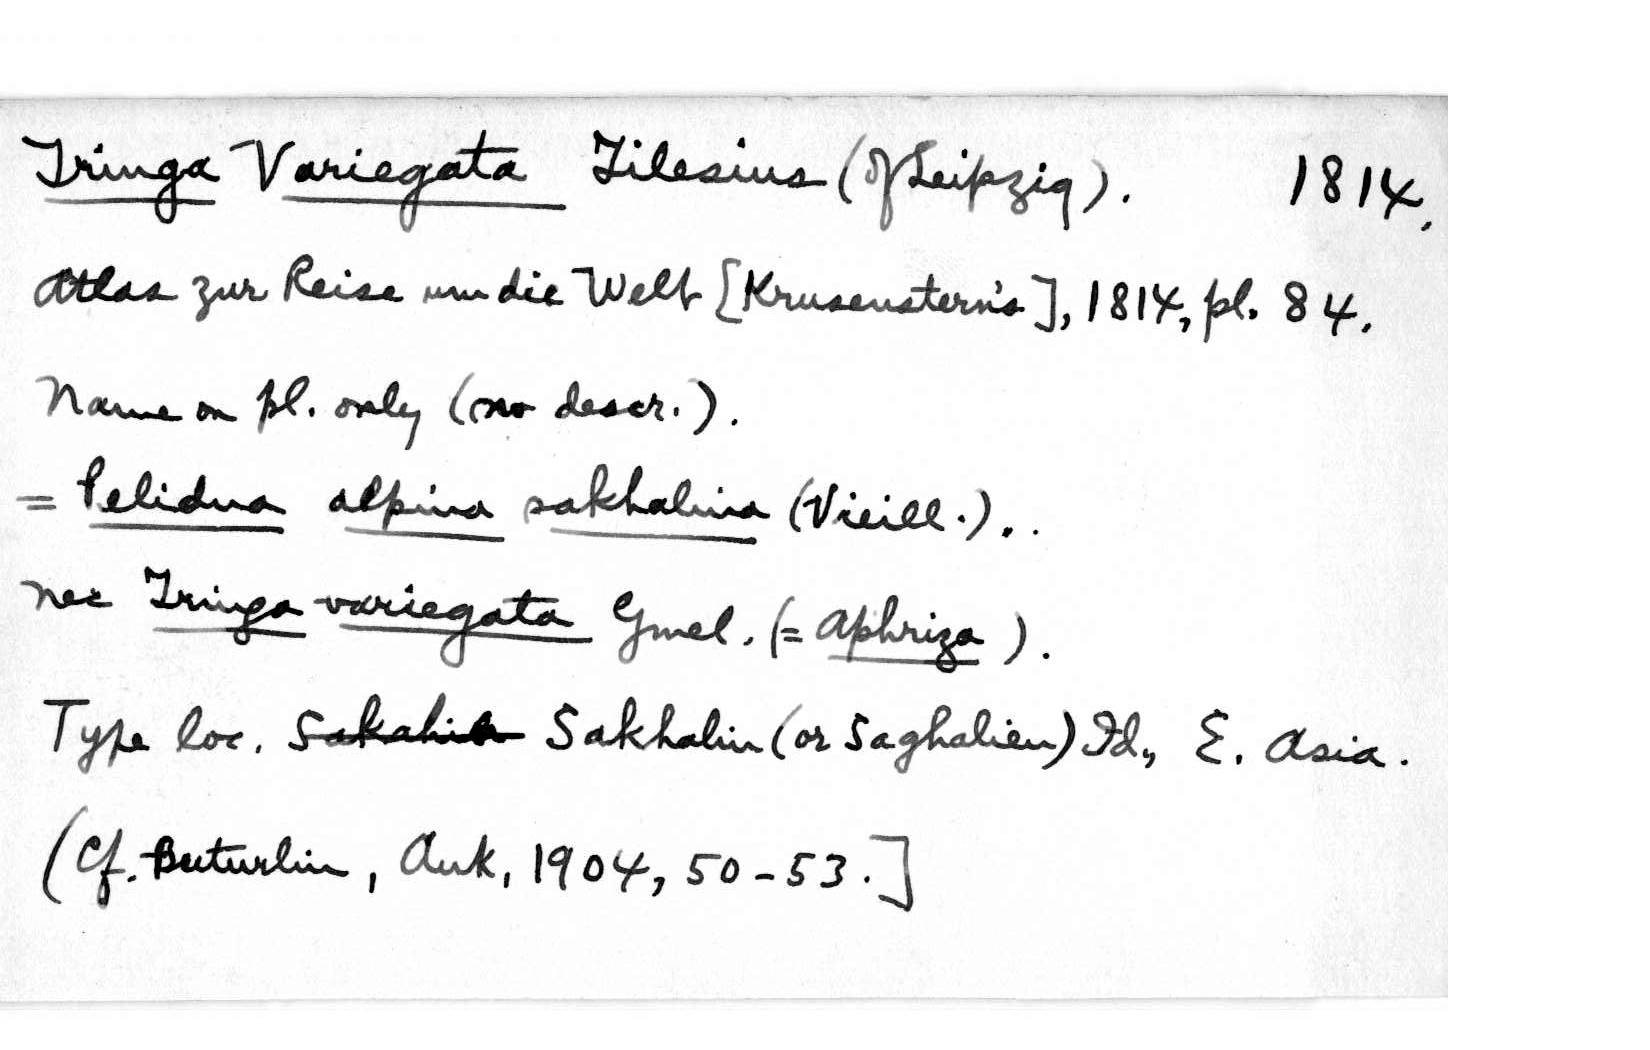 Tringa Variegata Tilesius (of Leipzig). 1814.
Atlas zur Reise um die Welt [Krusenstern's], 1814, pl. 84.
Name on pl. only (no descr.).
= Pelidna alpina sakhalina (Vieill.)..
nec Tringa variegata Gmel. (= Aphriza ).
Type loc. Sakahin Sakhalin (or Saghalien) Id., E. Asia.
(Cf. Buturlin, Auk, 1904, 50-53.]